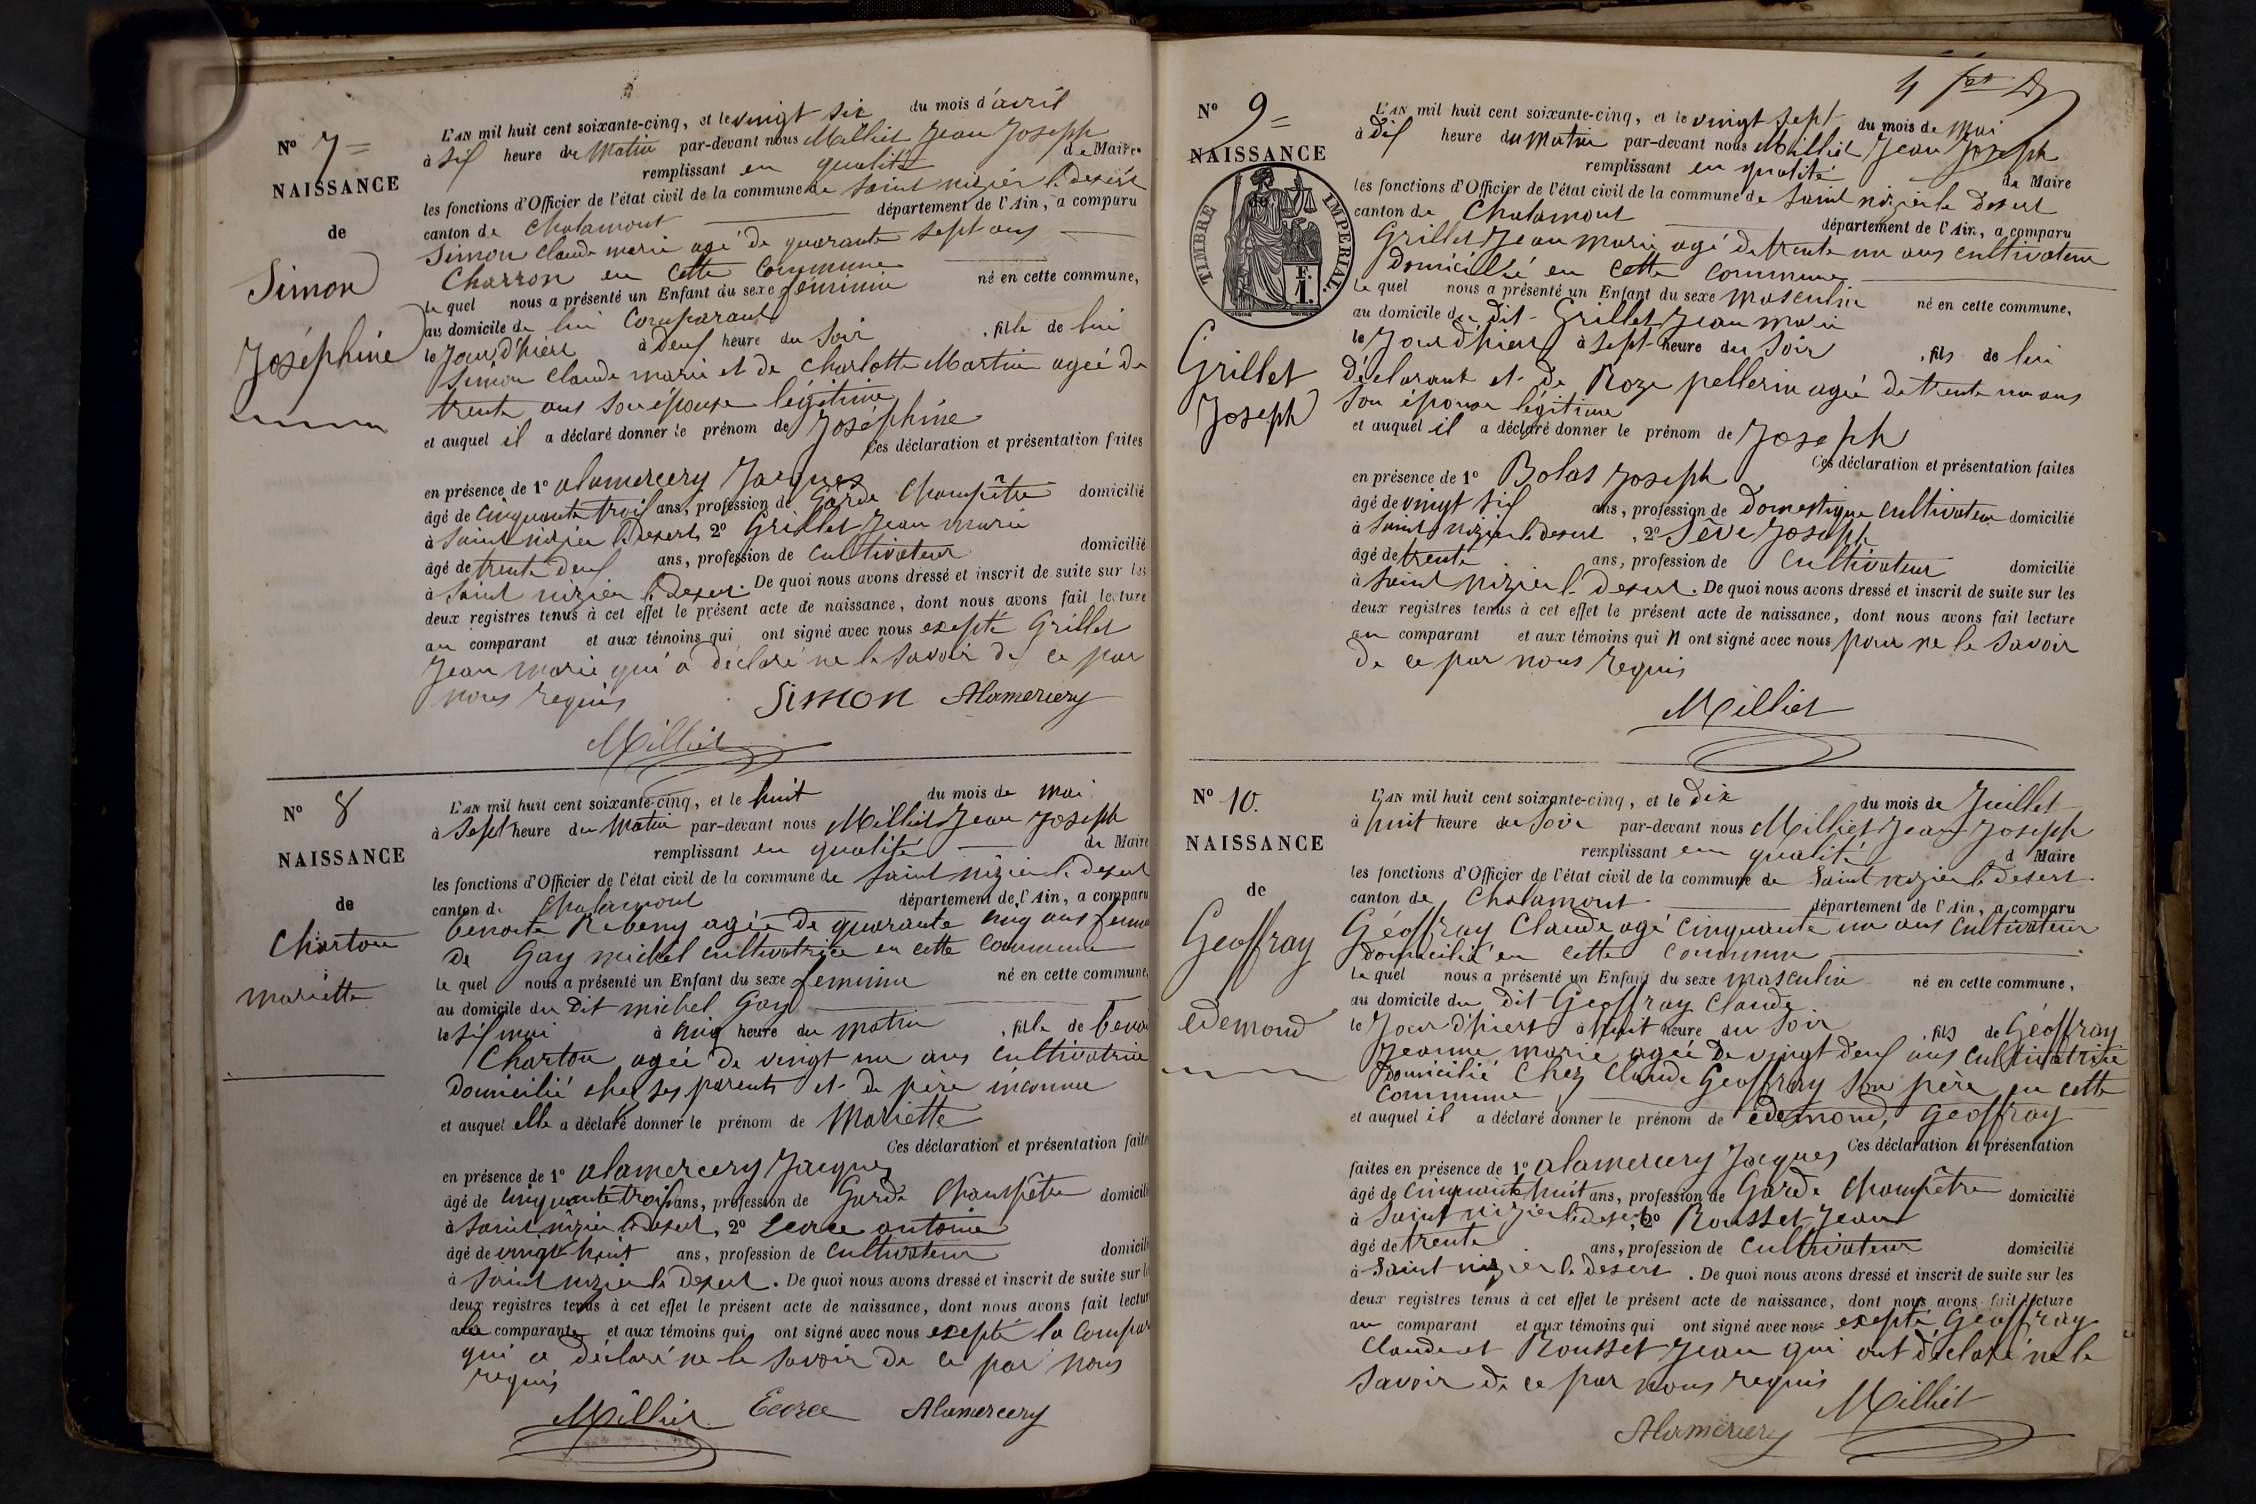 N° 7=
NAISSANCE
de
Simon
Joséphine
L'AN mil huit cent soixante-cinq, et le vingt six du mois d'avril
à six heure du Matin par-devant nous Milliet Jean Joseph
remplissant en qualité de Maire
les fonctions d'Officier de l'état civil de la commune de Saint nizier le desert
canton de Chalamont département de l'Ain, a comparu
Simon Claude marie agé de quarante sept ans
Charron en cette commune
le quel nous a présenté un Enfant du sexe féminin né en cette commune,
au domicile de lui Comparant
le Jour d'hiert à deux heure du Soir, fille de lui
Simon Claude marie et de Charlotte Martin ageé de
trente ans son épouse légitime
et auquel il a déclaré donner le prénom de Joséphine
Ces déclaration et présentation faites
en présence de 1° alamercery Jacques
âgé de cinquante troix ans, profession de Garde Champêtre domicilié
à Saint nizier le Desert, 2° Grillet Jean marie
âgé de trente deux ans, profession de Cultivateur domicilié
à Saint nizier le Desert. De quoi nous avons dressé et inscrit de suite sur les
deux registres tenus à cet effet le présent acte de naissance, dont nous avons fait lecture
au comparant et aux témoins qui ont signé avec nous exepté Grillet
Jean marie qui a déclaré ne le savoir de ce par
nous requis
Simon Alamercery
Milliet
N° 8
NAISSANCE
de
Charton
mariette
L'AN mil huit cent soixante-cinq, et le huit du mois de mai
à Sept heure du Matin par-devant nous Milliet Jean Joseph
remplissant en qualité de Maire
les fonctions d'Officier de l'état civil de la commune de Saint nizier le desert
canton de Chalamont département de l'Ain, a comparu
benoite Rebeny agée de quarante cinq ans femme
de Gay michel cultivatrice en cette commune
le quel nous a présenté un Enfant du sexe feminin né en cette commune,
au domicile du Dit michel Gay
le six mai à cinq heure du matin, fille de benoi
Charton ageé de vingt un ans cultivatrice
domicilié chez ses parents et de père inconnu
et auquel elle a déclaré donner le prénom de Mariette
Ces déclaration et présentation faites
en présence de 1° alamercery Jacques
âgé de cinquante troix ans, profession de Garde Champêtre domicili
à Saint nizier le Desert, 2° Ecorce antoine
âgé de vingt huit ans, profession de cultivateur domicili
à Saint nizier le Desert. De quoi nous avons dressé et inscrit de suite sur l
deux registres tenus à cet effet le présent acte de naissance, dont nous avons fait lectur
a la comparante et aux témoins qui ont signé avec nous exepté la compar
qui a déclaré ne le savoir de ce par nous
requis
Milliet Ecorce Alamercery
N° 9=
NAISSANCE
TIMBRE IMPERIAL.
F.
1.
Grillet
Joseph
L'AN mil huit cent soixante-cinq, et le vingt sept du mois de Mai
à dix heure du Matin par-devant nous Milliet Jean Joseph
remplissant en qualité de Maire
les fonctions d'Officier de l'état civil de la commune de Saint nizier le Desert
canton de Chalamont département de l'Ain, a comparu
Grillet Jean marie agé de trente un ans cultivateur
domicilié en cette commune
le quel nous a présenté un Enfant du sexe masculin né en cette commune,
au domicile du dit Grillet Jean marie
le Jour d'hiert à sept heure du Soir, fils de lui
déclarant et de Roze pellerin ageé de trente un ans
son épouse légitime
et auquel il a déclaré donner le prénom de Joseph
Ces déclaration et présentation faites
en présence de 1° Bolas Joseph
âgé de vingt six ans, profession de Domestique cultivateur domicilié
à Saint nizier le desert, 2° Sève Joseph
âgé de trente ans, profession de Cultivateur domicilié
à Saint nizier le desert. De quoi nous avons dressé et inscrit de suite sur les
deux registres tenus à cet effet le présent acte de naissance, dont nous avons fait lecture
au comparant et aux témoins qui n ont signé avec nous pour ne le savoir
de ce par nous requis
Milliet
N° 10.
NAISSANCE
de
Geoffray
edemond
L'AN mil huit cent soixante-cinq, et le dix du mois de Juillet
à huit heure du Soir par-devant nous Milliet Jean Joseph
remplissant en qualité d Maire
les fonctions d'Officier de l'état civil de la commune de Saint nizier le desert
canton de Chalamont département de l'Ain, a comparu
Géoffray Claude agé cinquante un ans cultivateur
domicilié en cette commune
le quel nous a présenté un Enfant du sexe masculin né en cette commune,
au domicile du dit Geoffray Claude
le Jour d'hiert à huit heure du Soir, fils de Géoffray
Jeanne marie ageé de vingt deux ans cultivatrice
domicilié chez Claude Geoffray son père en cette
commune
et auquel il a déclaré donner le prénom de edemond, Geoffray
Ces déclaration et présentation
faites en présence de 1° alamercery Jacques
âgé de cinquante huit ans, profession de Garde Champêtre domicilié
à Saint nizier le desert 2° Rousset Jean
âgé de trente ans, profession de cultivateur domicilié
à Saint nizier le desert. De quoi nous avons dressé et inscrit de suite sur les
deux registres tenus à cet effet le présent acte de naissance, dont nous avons fait lecture
au comparant et aux témoins qui ont signé avec nous exepté Geoffray
Claude et Rousset Jean qui ont déclaré ne le
savoir de ce par nous requis
Milliet
Alamercery